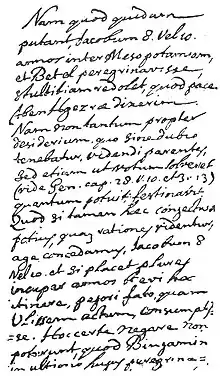 Nam quod quidam
putant, Jacobum 8. vel 10.
annos inter Mesopotamiam,
et Betel peregrinasse,
stultitiam redolet, quod pace
Aben Hgezræ dixerim
Nam non tantum propter
desiderium. quo sine dubio
tenebatur, videndi parentes,
sed etiam ut votum solveret
(vide Gen. cap. 28. v. 10. et 31. 13)
quantum potuit festinavit
Quod si tamen hæc conjectura
potius, quam rationes videntur,
age concedamus, Jacobum 8
vel 10. et si placet plures
insuper annos brevi hoc
itinere, pejori fato, quam
Ulissem actum, consumpsis=
=se. Hoc certe negare non
poterunt, quod Binjamin
in ultimo hujus peregrina=